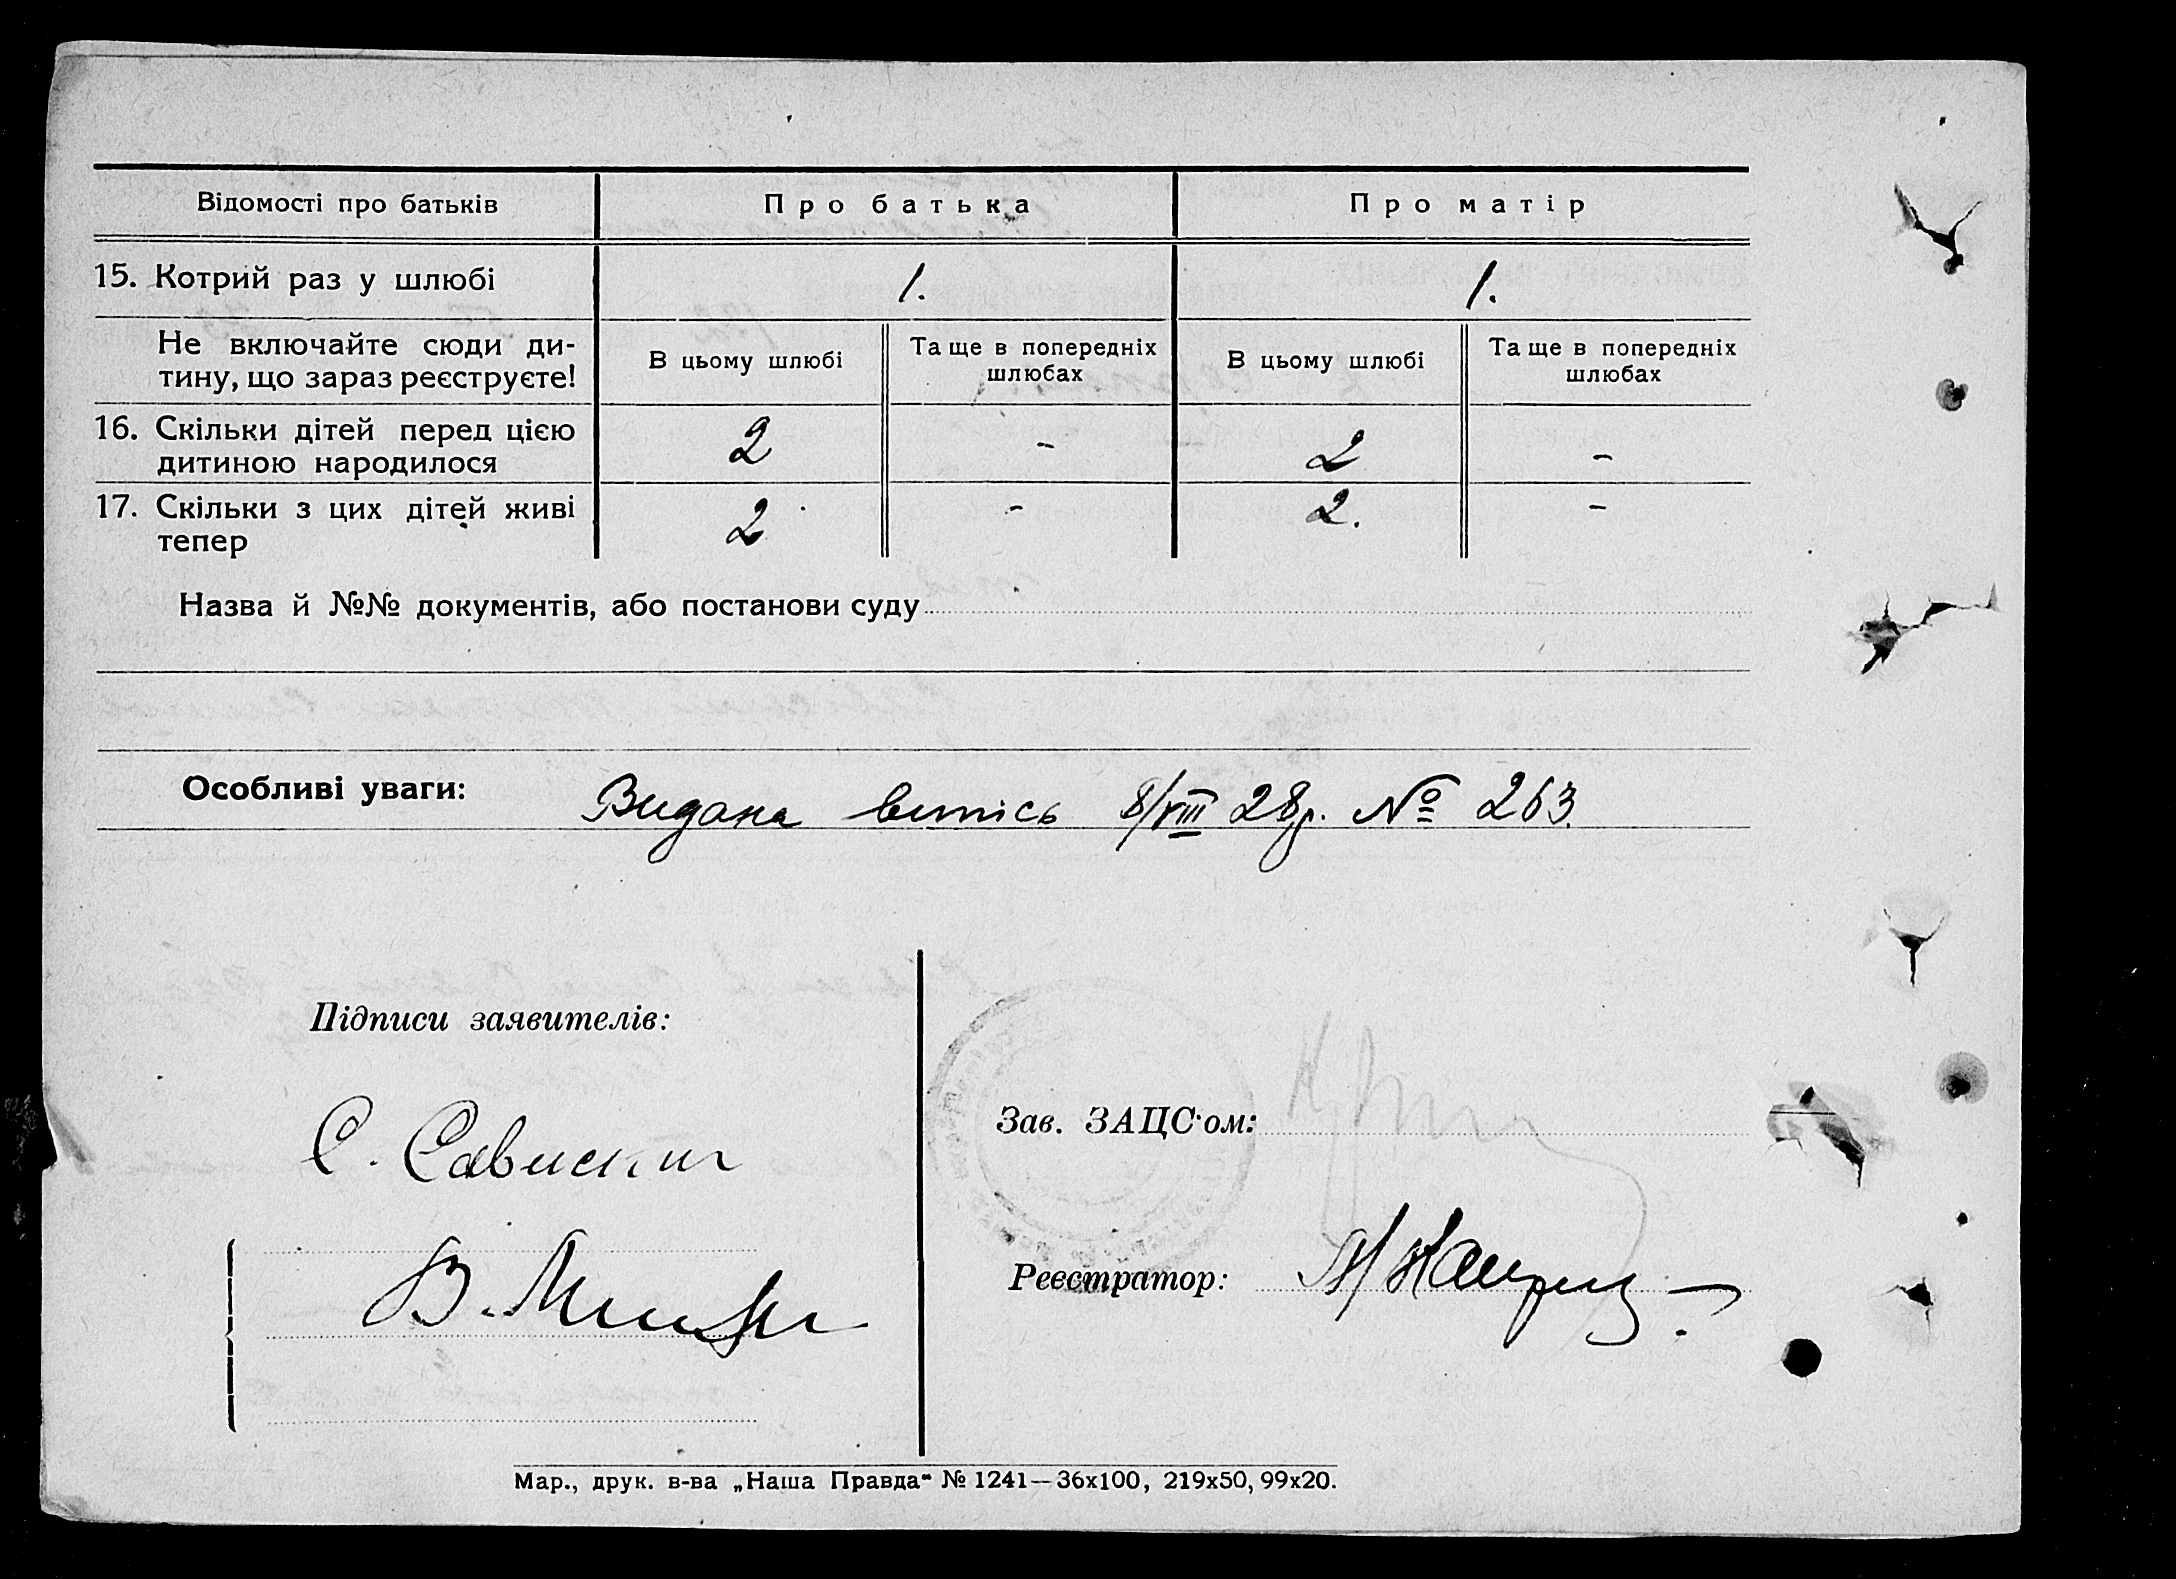 Відомості про батьків Про батька Про матір
15. Котрий раз у шлюбі 1. 1.
Не включайте сюди ди-
тину, що зараз реєструєте!
В цьому шлюбі Та ще в попередніх шлюбах В цьому шлюбі Та ще в попередніх шлюбах
16. Скільки дітей перед цією
дитиною народилося 2 - 2 -
17. Скільки з цих дітей живі
тепер 2 - 2. -
Назва й №№ документів, або постанови суду
Особливі уваги: Видана витісь 8/VIII 28р. № 263.
Підписи заявителів:
Зав. ЗАЦС'ом:
С. Савиский
Реєстратор:
Мар., друк. в-ва „Наша Правда" № 1241—36х100, 219х50, 99х20.